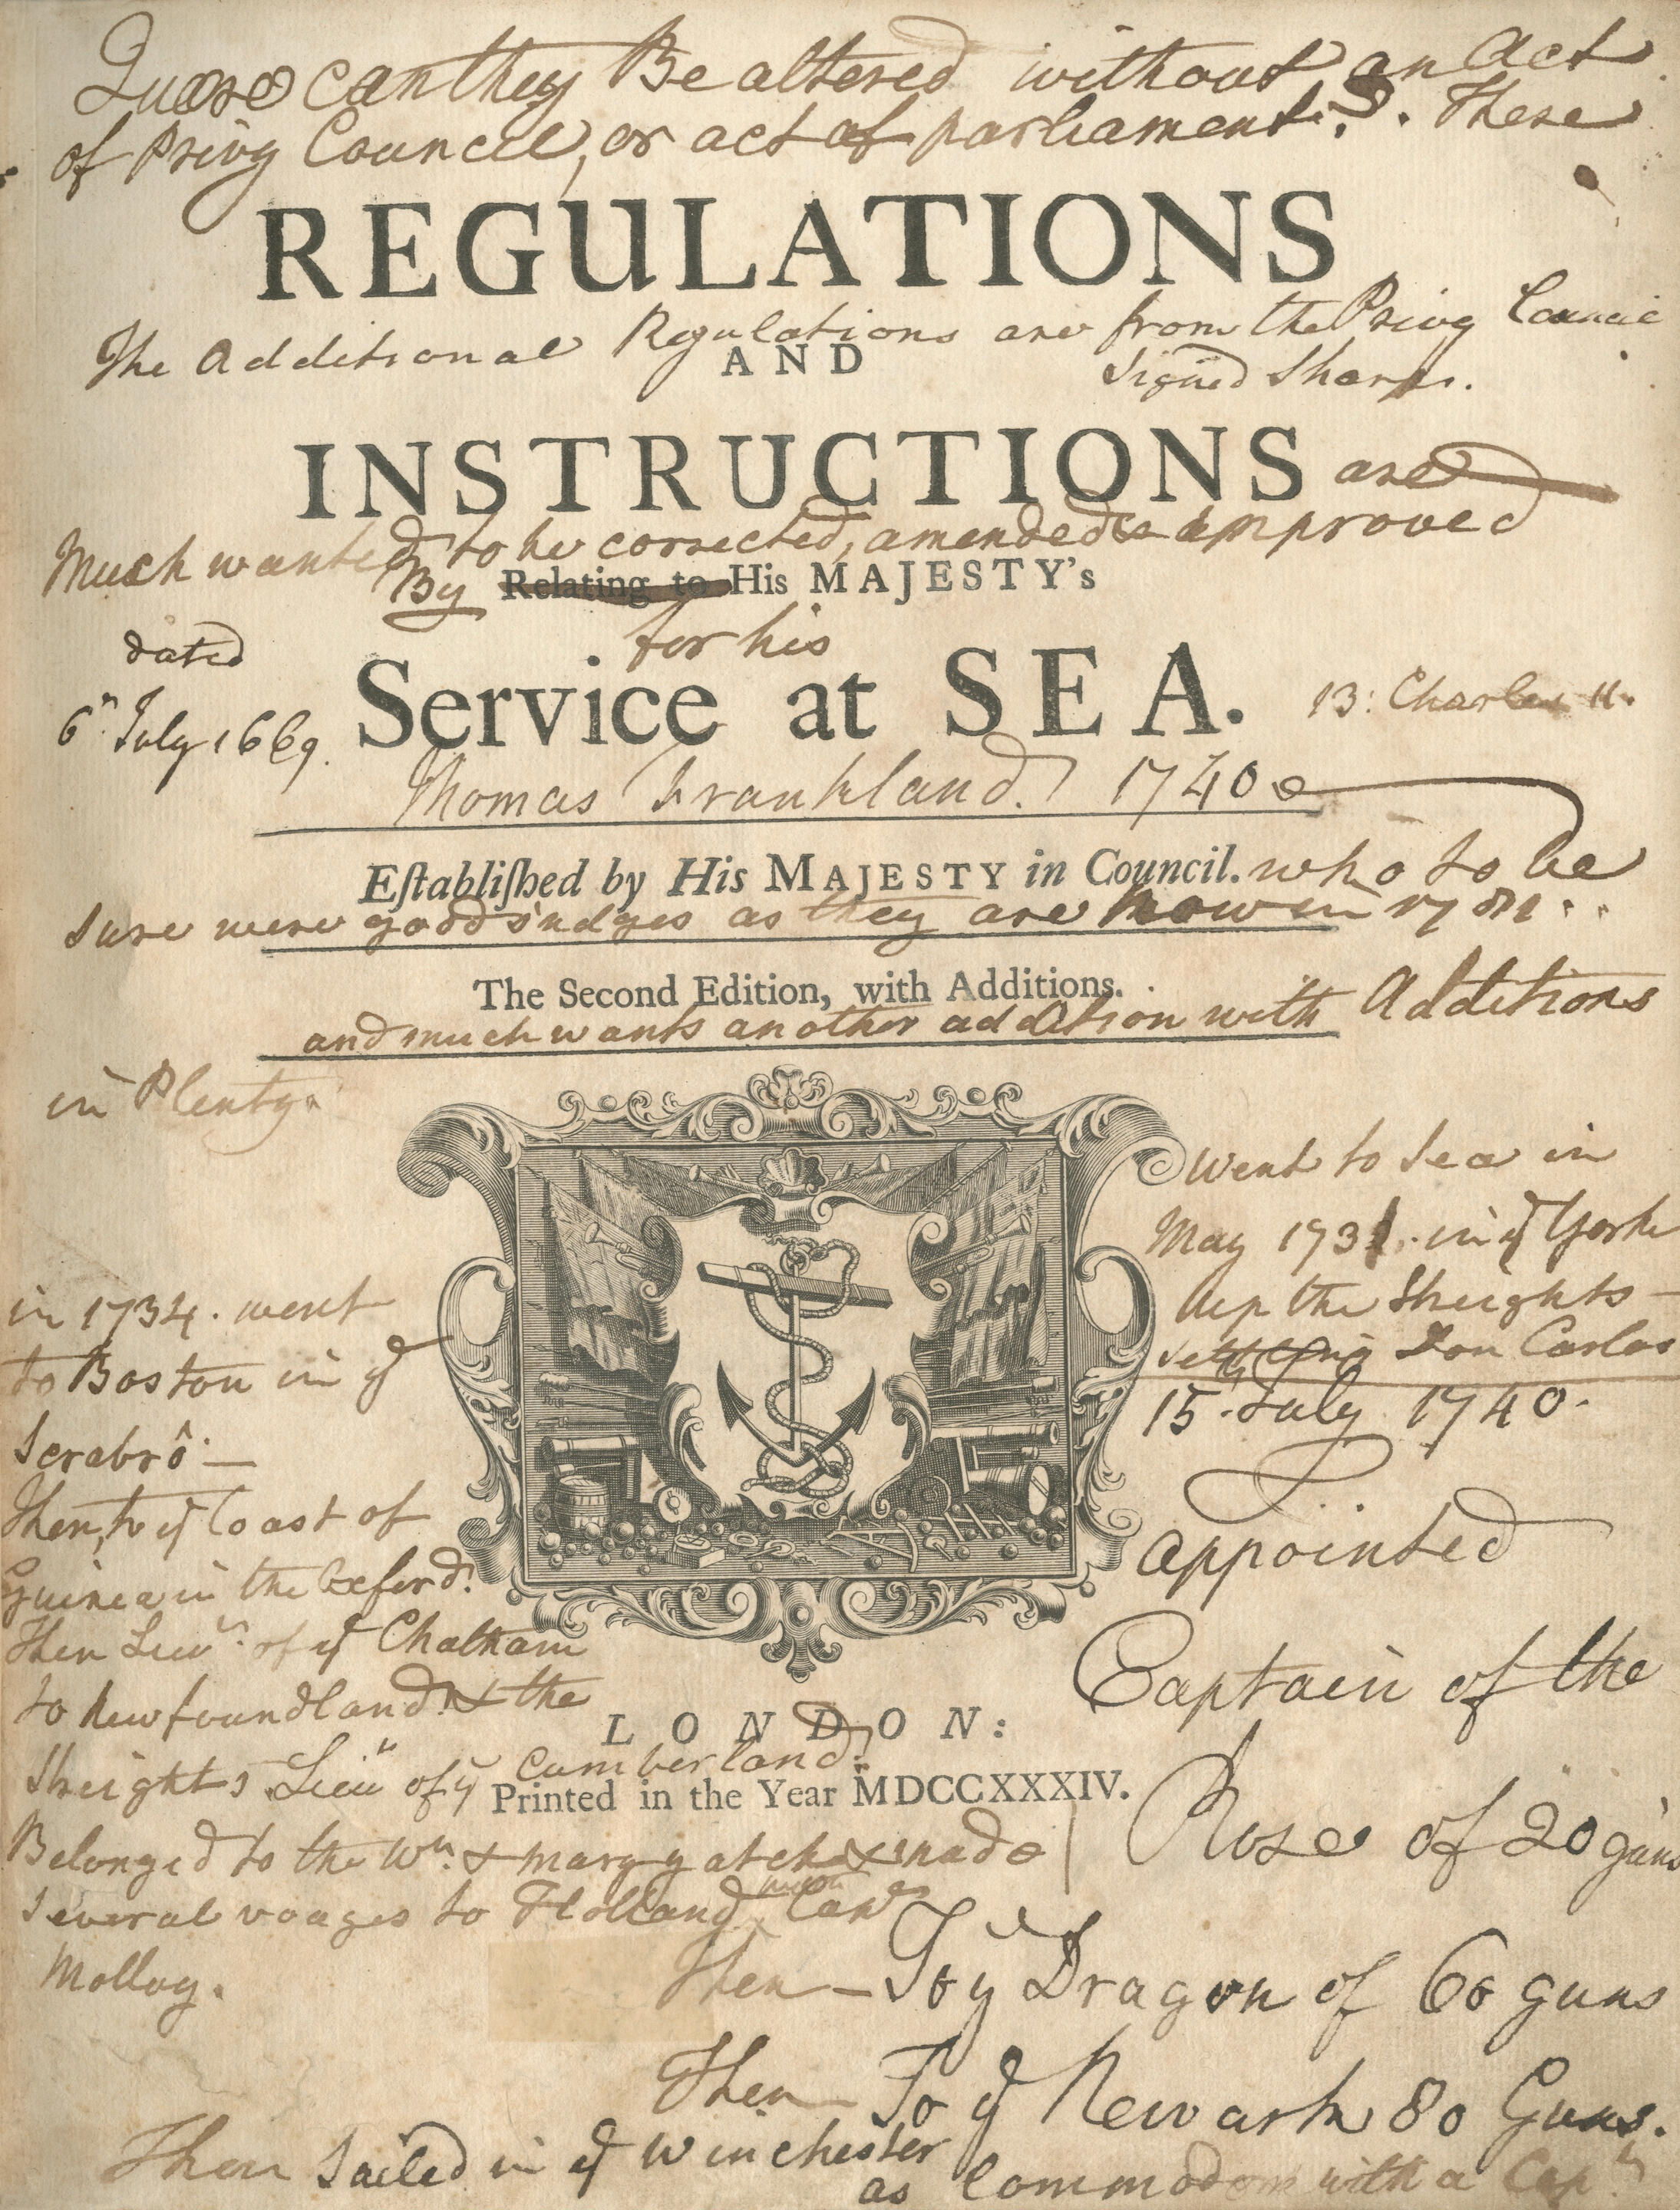 Quære can they Be altered without an Act
of Privy Council, or act of parliament?. These
REGULATIONS
The Additional Regulations are from the Privy Council
AND
Signed Sharpe.
INSTRUCTIONS are
Much wanted to be corrected, amended & approved
By Relating to His MAJESTY's
for his
dated
6th July 1669.
Service at SEA.
13: Charles 11.
Thomas Frankland. 1740
Eſtabliſhed by His MAJESTY in Council. who to be
Sure were good Judges as they are now in 1781..
The Second Edition, with Additions.
and much wants another addition with Additions
in Plenty.
Went to Sea in
May 1731. in ye York
Up the Streights –
settling Don Carlos
15th July 1740.
appointed
Captain of the
Rose of 20 guns
in 1734. went
to Boston in ye
Scarbro –
Then to ye Coast of
Guinea in the Oxford.
Then Lieut. of ye Chatham
to Newfoundland & the
Streights Lieut of ye Cumberland.
LONDON:
Printed in the Year MDCCXXXIV.
Belonged to the Wm. & mary yatch & made
Several voages to Holland with Capt
Molloy.
Then – To ye Dragon of 60 guns
Then To ye Newark 80 Guns.
Then Sailed in ye Winchester
as Commodore with a Capt